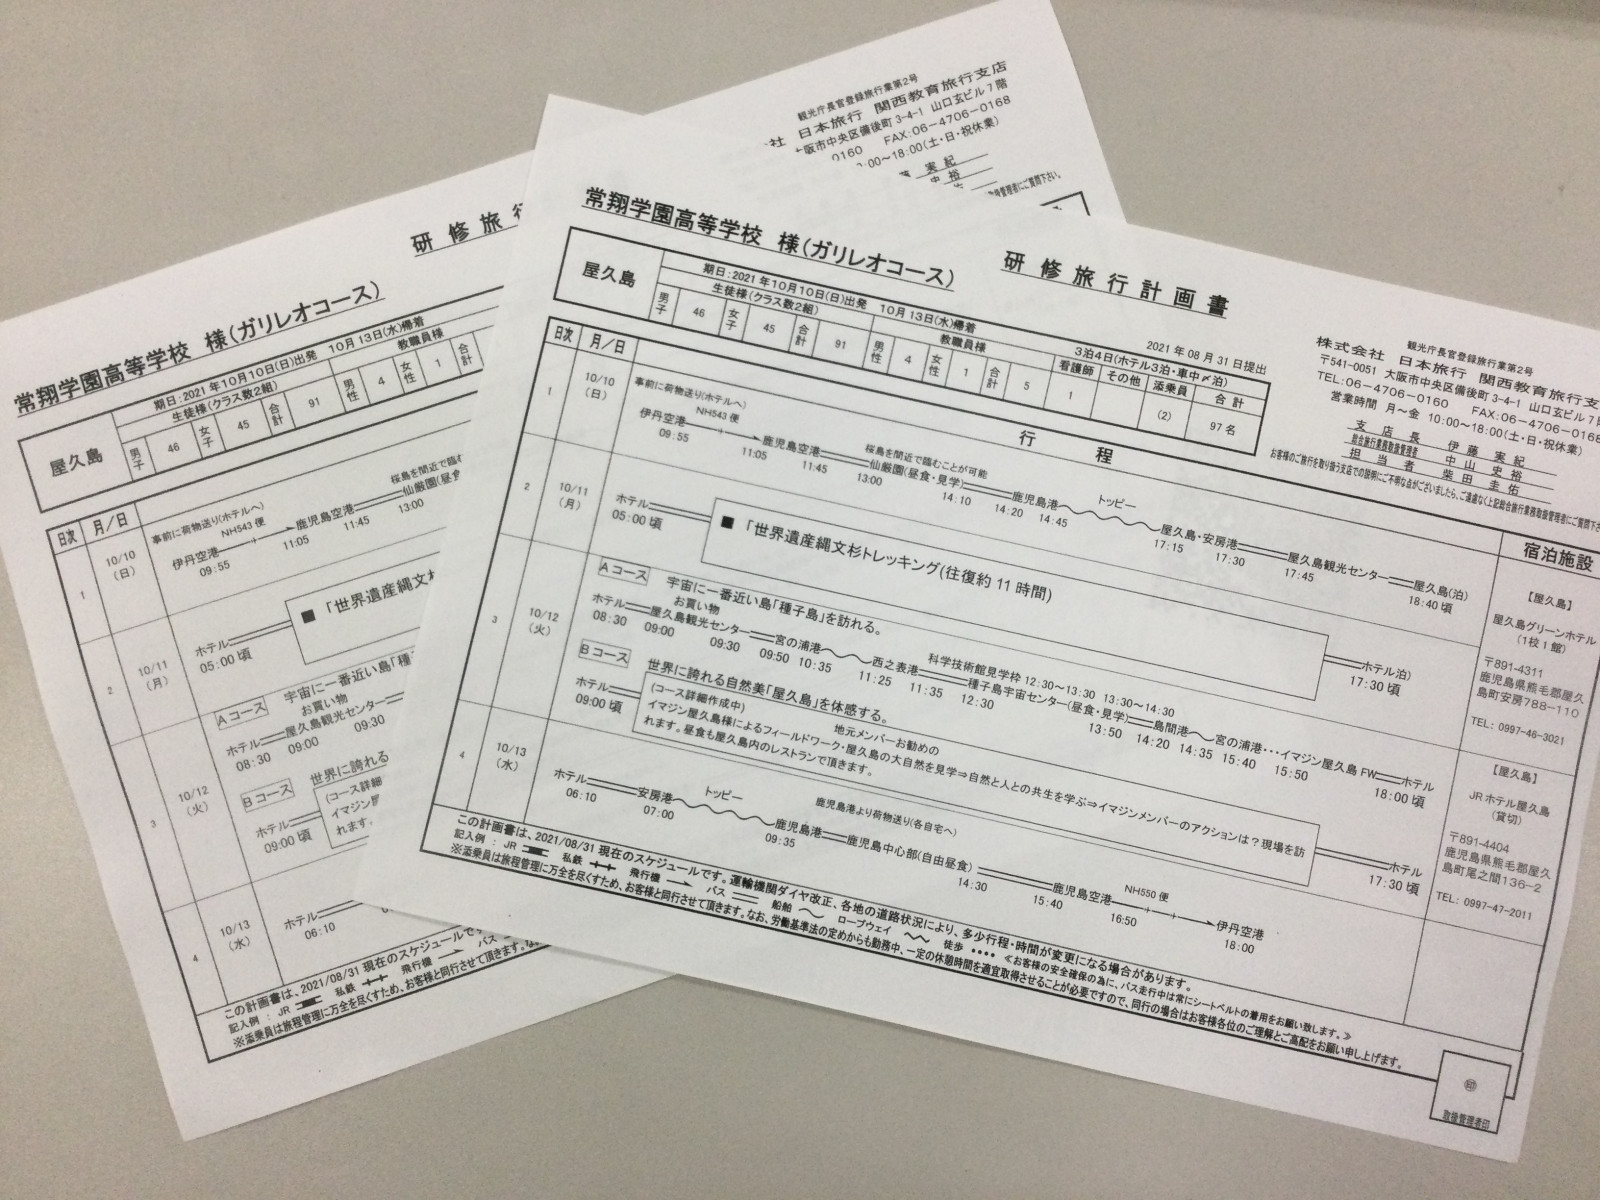 観光庁長官登録旅行業第2号
社 日本旅行 関西教育旅行支店
大阪市中央区備後町3-4-1 山口玄ビル7階
0160 FAX:06-4706-0168
:00～18:00(土・日・祝休業)
実紀
史裕
取扱管理者にご質問下さい。
研修旅行
常翔学園高等学校 様(ガリレオコース)
屋久島
期日:2021年10月10日(日)出発 10月13日(水)帰着
生徒様(クラス数2組)
教職員様
男子 46 女子 45 合計 91 男性 4 女性 1 合計
日次 月/日
1 10/10 (日)
事前に荷物送り(ホテルへ)
桜島を間近で臨む
NH543便
伊丹空港 鹿児島空港 仙厳園(昼食
09:55 11:05 11:45 13:00
2 10/11 (月)
ホテル ■「世界遺産縄文杉
05:00頃
3 10/12 (火)
Aコース 宇宙に一番近い島「種
お買い物
ホテル 屋久島観光センター
08:30 09:00 09:30
Bコース 世界に誇れる
(コース詳細
イマジン屋
れます。
ホテル
09:00頃
4 10/13 (水)
ホテル
06:10
この計画書は、2021/08/31現在のスケジュールです
記入例 : JR 私鉄 飛行機 バス
※添乗員は旅程管理に万全を尽くすため、お客様と同行させて頂きます。な
常翔学園高等学校 様(ガリレオコース)
研修旅行計画書
2021年08月31日提出
観光庁長官登録旅行業第2号
株式会社 日本旅行 関西教育旅行支
〒541-0051 大阪市中央区備後町3-4-1 山口玄ビル7
TEL:06-4706-0160 FAX:06-4706-0168
営業時間 月～金 10:00～18:00(土・日・祝休業)
支店長 伊藤 実紀
総合旅行業務取扱管理者 中山 史裕
担当者 柴田 圭佑
お客様のご旅行を取り扱う支店での説明にご不明な点がございましたら、ご遠慮なく上記総合旅行業務取扱管理者にご質問下さ
屋久島
期日:2021年10月10日(日)出発 10月13日(水)帰着
3泊4日(ホテル3泊・車中〆泊)
生徒様(クラス数2組) 教職員様 看護師 その他 添乗員 合計
男子 46 女子 45 合計 91 男性 4 女性 1 合計 5 1 (2) 97名
日次 月/日 行程 宿泊施設
1 10/10 (日)
事前に荷物送り(ホテルへ)
NH543便
桜島を間近で臨むことが可能
トッピー
伊丹空港 鹿児島空港 仙厳園(昼食・見学) 鹿児島港 屋久島・安房港 屋久島観光センター 屋久島(泊)
09:55 11:05 11:45 13:00 14:10 14:20 14:45 17:15 17:30 17:45 18:40頃
2 10/11 (月)
ホテル ■「世界遺産縄文杉トレッキング(往復約11時間) ホテル泊)
05:00頃 17:30頃
3 10/12 (火)
Aコース 宇宙に一番近い島「種子島」を訪れる。
お買い物
科学技術館見学枠 12:30～13:30 13:30～14:30
ホテル 屋久島観光センター 宮の浦港 西之表港 種子島宇宙センター(昼食・見学) 島間港 宮の浦港・・・イマジン屋久島 FW ホテル
08:30 09:00 09:30 09:50 10:35 11:25 11:35 12:30 13:50 14:20 14:35 15:40 15:50 18:00頃
Bコース 世界に誇れる自然美「屋久島」を体感する。
地元メンバーお勧めの
(コース詳細作成中)
イマジン屋久島様によるフィールドワーク・屋久島の大自然を見学⇒自然と人との共生を学ぶ⇒イマジンメンバーのアクションは?現場を訪
れます。昼食も屋久島内のレストランで頂きます。
ホテル ホテル
09:00頃 17:30頃
4 10/13 (水)
トッピー
鹿児島港より荷物送り(各自宅へ)
NH550便
ホテル 安房港 鹿児島港 鹿児島中心部(自由昼食) 鹿児島空港 伊丹空港
06:10 07:00 09:35 14:30 15:40 16:50 18:00
【屋久島】
屋久島グリーンホテル
(1枚1館)
〒891-4311
鹿児島県熊毛郡屋久
島町安房788-110
TEL: 0997-46-3021
【屋久島】
JRホテル屋久島
(貸切)
〒891-4404
鹿児島県熊毛郡屋久
島町尾之間136-2
TEL: 0997-47-2011
この計画書は、2021/08/31現在のスケジュールです。運輸機関ダイヤ改正、各地の道路状況により、多少行程・時間が変更になる場合があります。
記入例 : JR 私鉄 飛行機 バス 船舶 ロープウェイ 徒歩 ・・・・ ≪お客様の安全確保の為に、バス走行中は常にシートベルトの着用をお願い致します。≫
※添乗員は旅程管理に万全を尽くすため、お客様と同行させて頂きます。なお、労働基準法の定めからも勤務中、一定の休憩時間を適宜取得させることが必要ですので、同行の場合はお客様各位のご理解とご高配をお願い申し上げます。
印
取扱管理者印